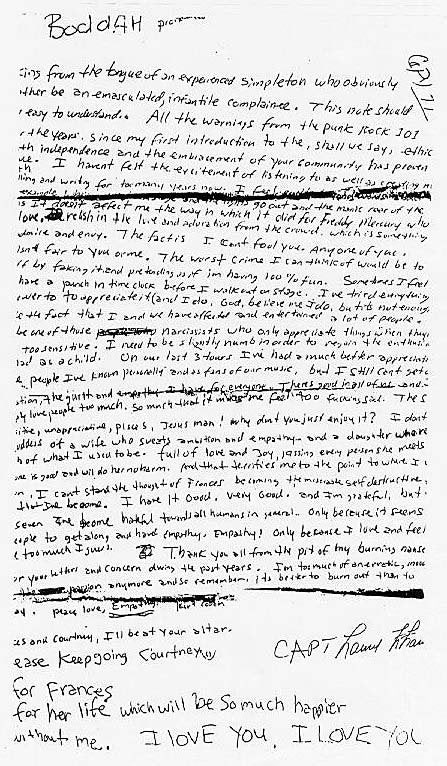 BoddAH
ing from the tongue of an experienced simpleton who obviously
ther be an emasculated, infantile complainee. This note should
easy to understand. All the warnings from the punk rock 101
the years. Since my first introduction to the, shall we say, ethic
th independence and the embracement of your community has proven
ue. I havent felt the excitement of listening to as well as creating m
and writing for too many years now. I feel
go out and the manic roar of the
it doesnt affect me the way in which it did for Freddy Mercury who
love, relish in the love and adoration from the crowd. which is something
admire and envy. The fact is I cant fool you. Any one of you.
isnt fair to you or me. The worst crime I can think of would be to
ff by faking it and pretending as if im having 100% fun. Sometimes I feel
have a punch in time clock before I walk out on stage. I've tried everything
ower to to appreciate it (and I do, God, believe me I do, but it's not enoug
the fact that I and we have affected and entertained a lot of people.
be one of those narcissists who only appreciate things when they
too sensitive. I need to be slightly numb in order to regain the enthusia
had as a child. On our last 3 tours I've had a much better appreciati
people I've known personally and as fans of our music, but I still cant get
tion, the guilt and empathy I have for everyone. There's good in all of us and
ply love people too much. So much that it makes me feel too fucking sad. The s
itive, unappreciative, pisces, Jesus man! why dont you just enjoy it? I dont
oddess of a wife who sweats ambition and empathy. and a daughter who re
h of what I used to be. full of love and joy, kissing every person she meets
one is good and will do her no harm. And that terrifies me to the point to where I
n. I cant stand the thought of Frances becoming the miserable self destructive,
that Ive become. I have it Good. Very Good. and I'm grateful, but
seven Ive become hateful towards all humans in general. Only because it seems
eople to get along and have empathy. Empathy! Only because I love and feel
e too much I guess. Thank you all from the pit of my burning nause
or your letters and concern during the past years. I'm too much of an erratic, moo
passion anymore and so remember, its better to burn out than to
ay. peace love, Empathy. Kurt Cobain
es and Courtney, I'll be at your altar.
ease Keep going Courtney
for Frances
for her life which will be so much happier
without me. I LOVE YOU. I LOVE YOU
CAPT